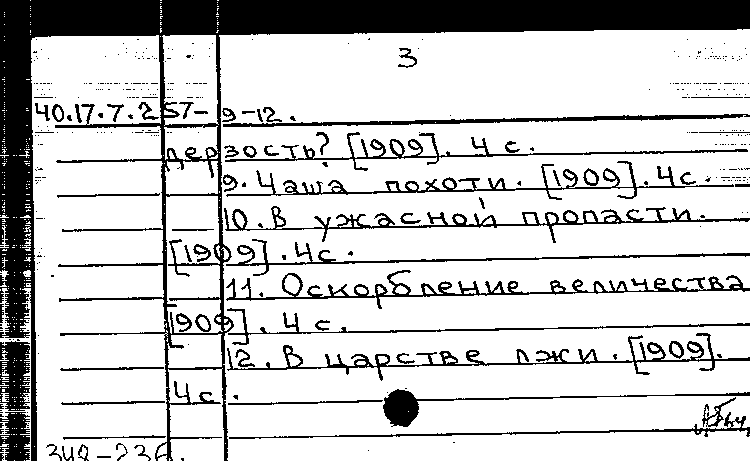 3
40.17.7.257-9-12.
дерзость? [1909]. 4 с.
9. Чаша похоти. [1909]. 4с.
10. В ужасной пропасти.
[1909]. 4с.
11. Оскорбление величества
[1909]. 4 с.
12. В царстве лжи. [1909].
4с.